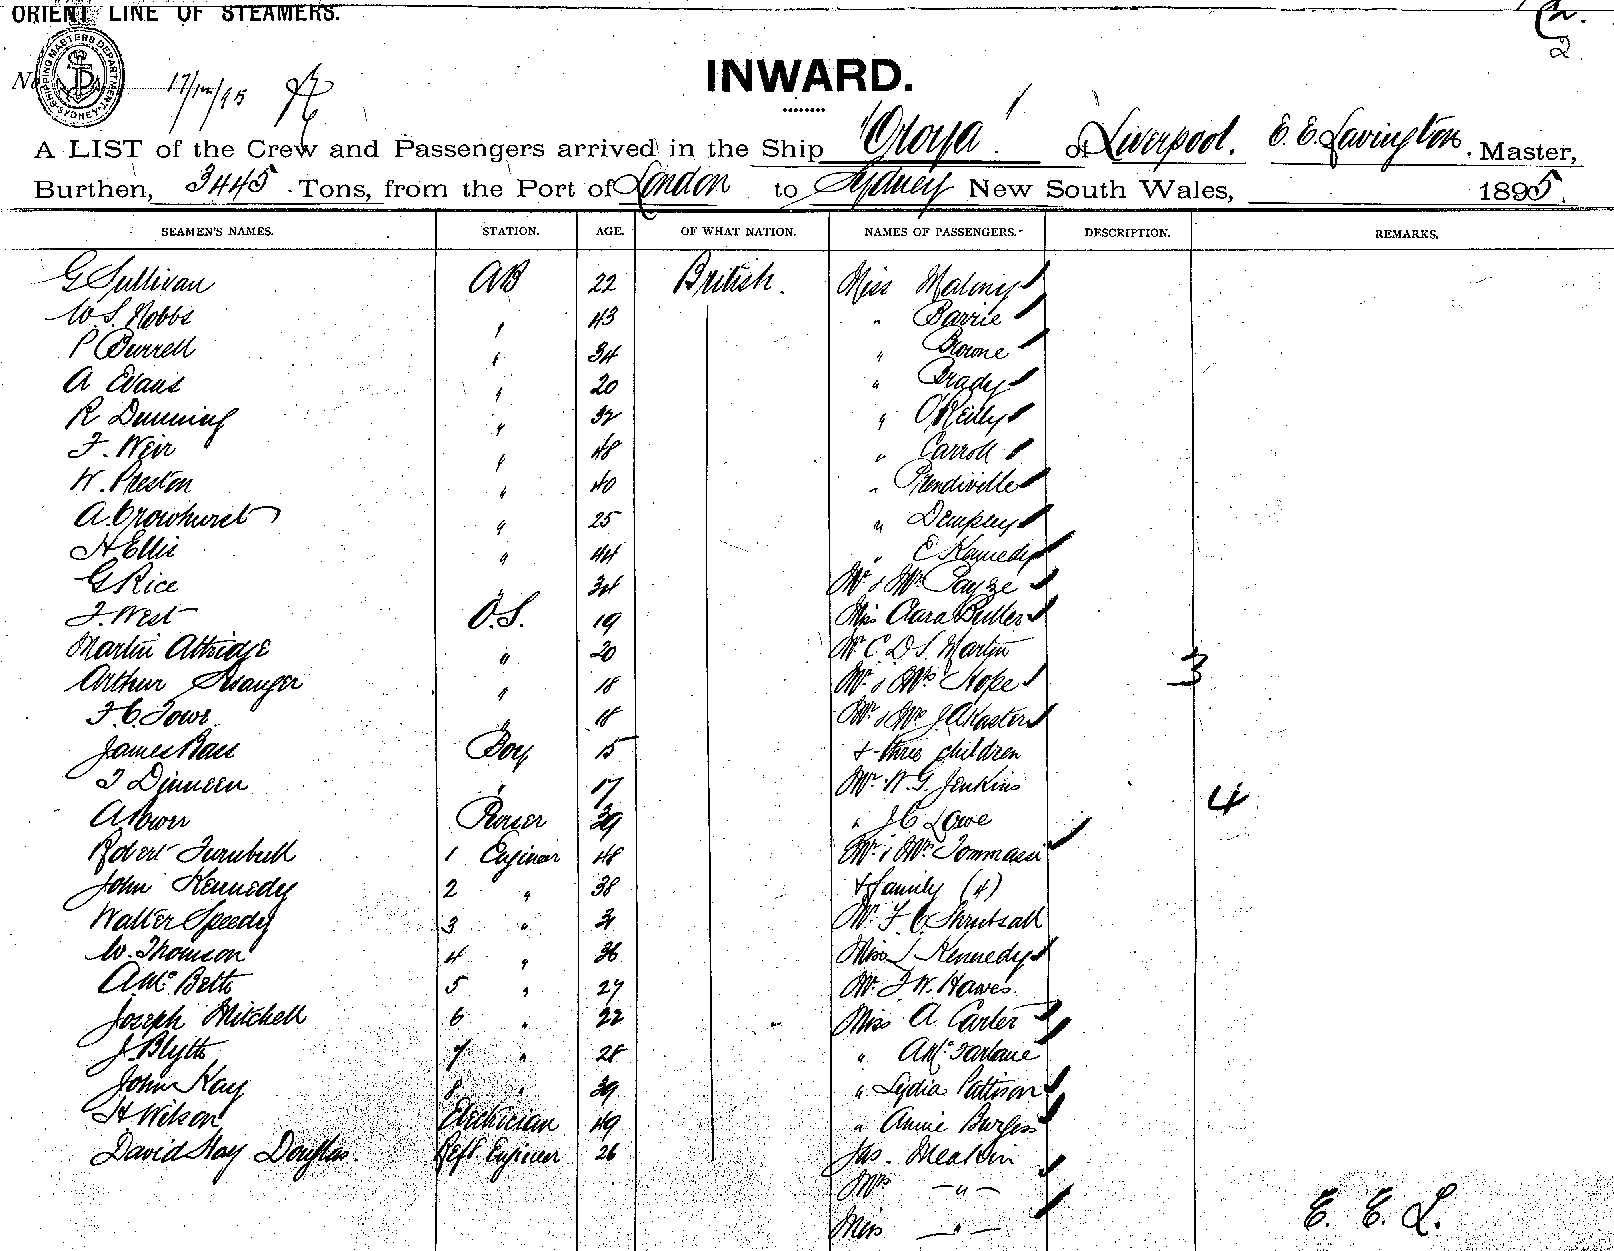 ORIENT LINE OF STEAMERS.
2
SHIPPING MASTERS DEPARTMENT SYDNEY
No 17/ /95
INWARD.
A LIST of the Crew and Passengers arrived in the Ship "Oroya" of Liverpool. E. E. Lavington. Master,
Burthen, 3445 Tons, from the Port of London to Sydney New South Wales, 1895.
SEAMEN'S NAMES. STATION. AGE. OF WHAT NATION. NAMES OF PASSENGERS. DESCRIPTION. REMARKS.
G Sullivan AB 22 British. Miss Malony
W. S. Hobbs " 43 " Barrie
P Burrell " 34 " Browne
A Evans " 20 " Brady
R Dunning " 32 " O'Reilly
F. Weir " 48 " Carroll
W. Preston " 40 " Prendiville
A. Crowhurst " 25 " Dempley
H Ellis " 44 " E Kennedy
G Rice " 34 Mr & Mrs Payze
F. West O.S. 19 Miss Clara Butler
Martin Attridge " 20 Mr C D S. Martin
Arthur Stranger " 18 Mr & Mrs Hope 3
F. C. " 18 Mr & Mrs J A Kaston
James Bass Boy 15 + three children
T Dinneen " 17 Mr W. G. Jenkins
A Power 39 " J C Lowe 4
Robert Turnbull 1 Engineer 48 Mr & Mrs Tommasi
John Kennedy 2 " 38 + family (4)
Walter Speedy 3 " 31 Mr F. C. Shrubsall
W. Thomson 4 " 36 Miss L Kennedy
A Mc Betts 5 " 27 Mr F. W. Hawes.
Joseph Mitchell 6 " 22 Miss A. Carter
J. Blyth 7 " 28 " A McFarlane
John Kay 8 " 39 " Lydia Pattison
H Wilson Electrician 49 " Annie Burgess
David Hay Douglas. Refr Engineer 26 Jas. Meakin
Mrs — " —
Miss — " — E. E. L.